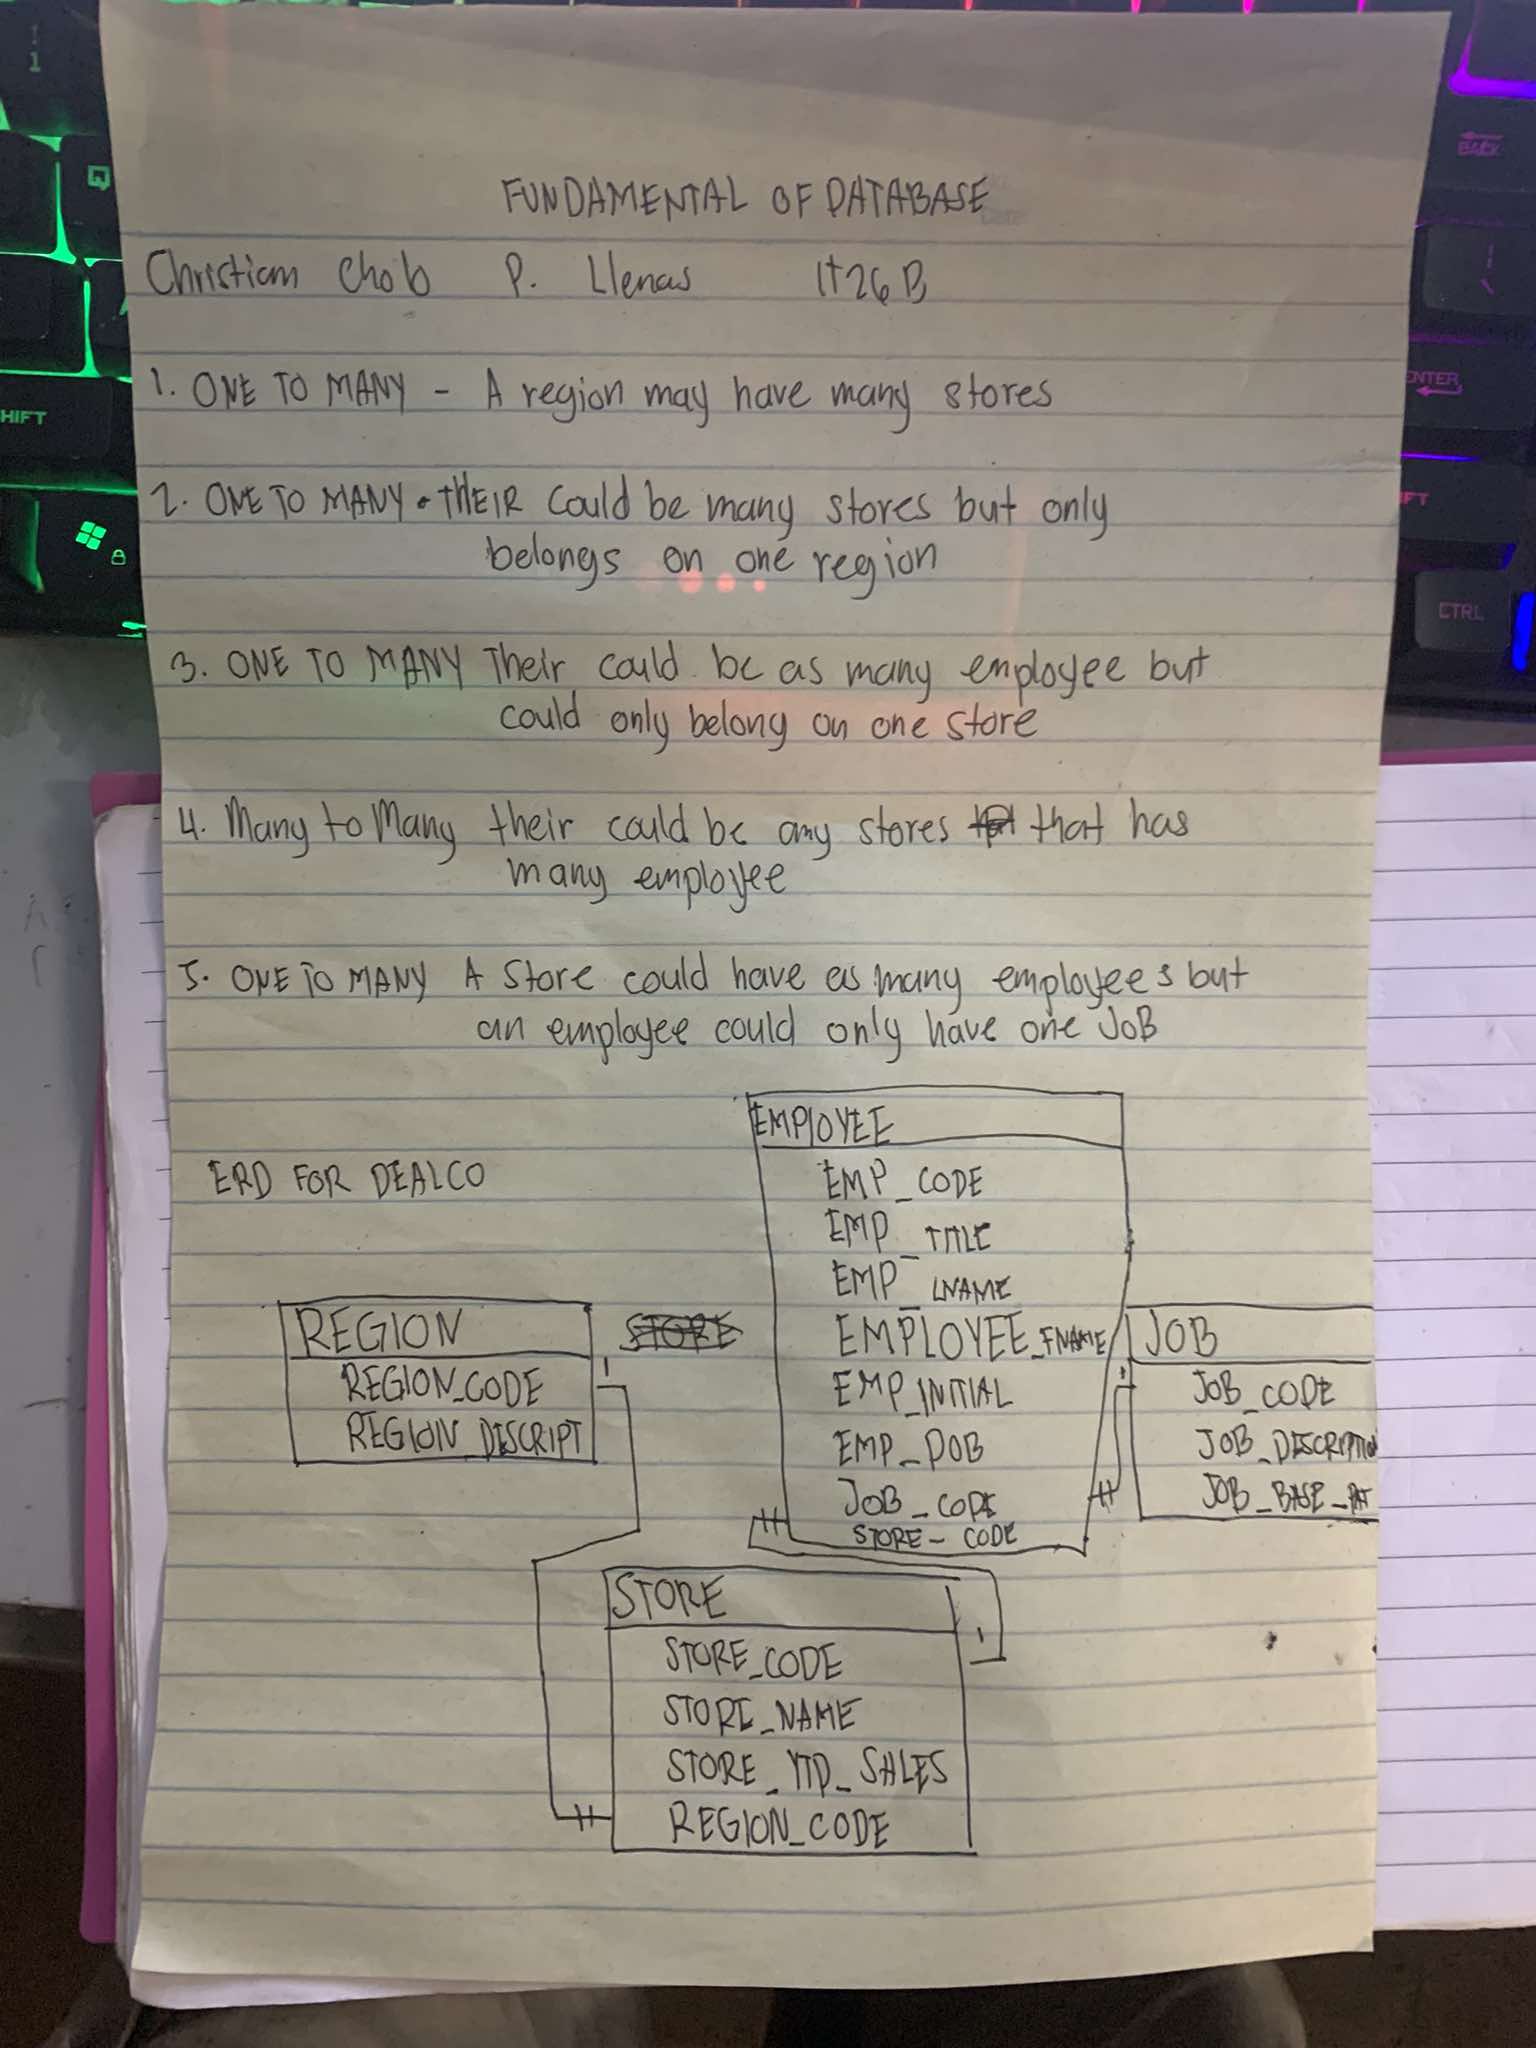 FUNDAMENTAL OF DATABASE
Christian Chob P. Llenas IT26B
1. ONE TO MANY - A region may have many stores
2. ONE TO MANY - THEIR could be many stores but only
belongs on one region
3. ONE TO MANY Their could be as many employee but
could only belong on one store
4. Many to Many their could be any stores that has
many employee
5. ONE TO MANY A Store could have as many employees but
an employee could only have one JOB
ERD FOR DEALCO
EMPLOYEE
EMP_CODE
EMP_TITLE
EMP_LNAME
EMPLOYEE_FNAME
EMP_INITIAL
EMP_DOB
JOB_CODE
STORE_CODE
REGION
REGION_CODE
REGION_DISCRIPT
STORE
JOB
JOB_CODE
JOB_DISCRIPTION
JOB_BASE_PAY
STORE
STORE_CODE
STORE_NAME
STORE_YTD_SALES
REGION_CODE
Q
SHIFT
1
BACK
ENTER
CTRL